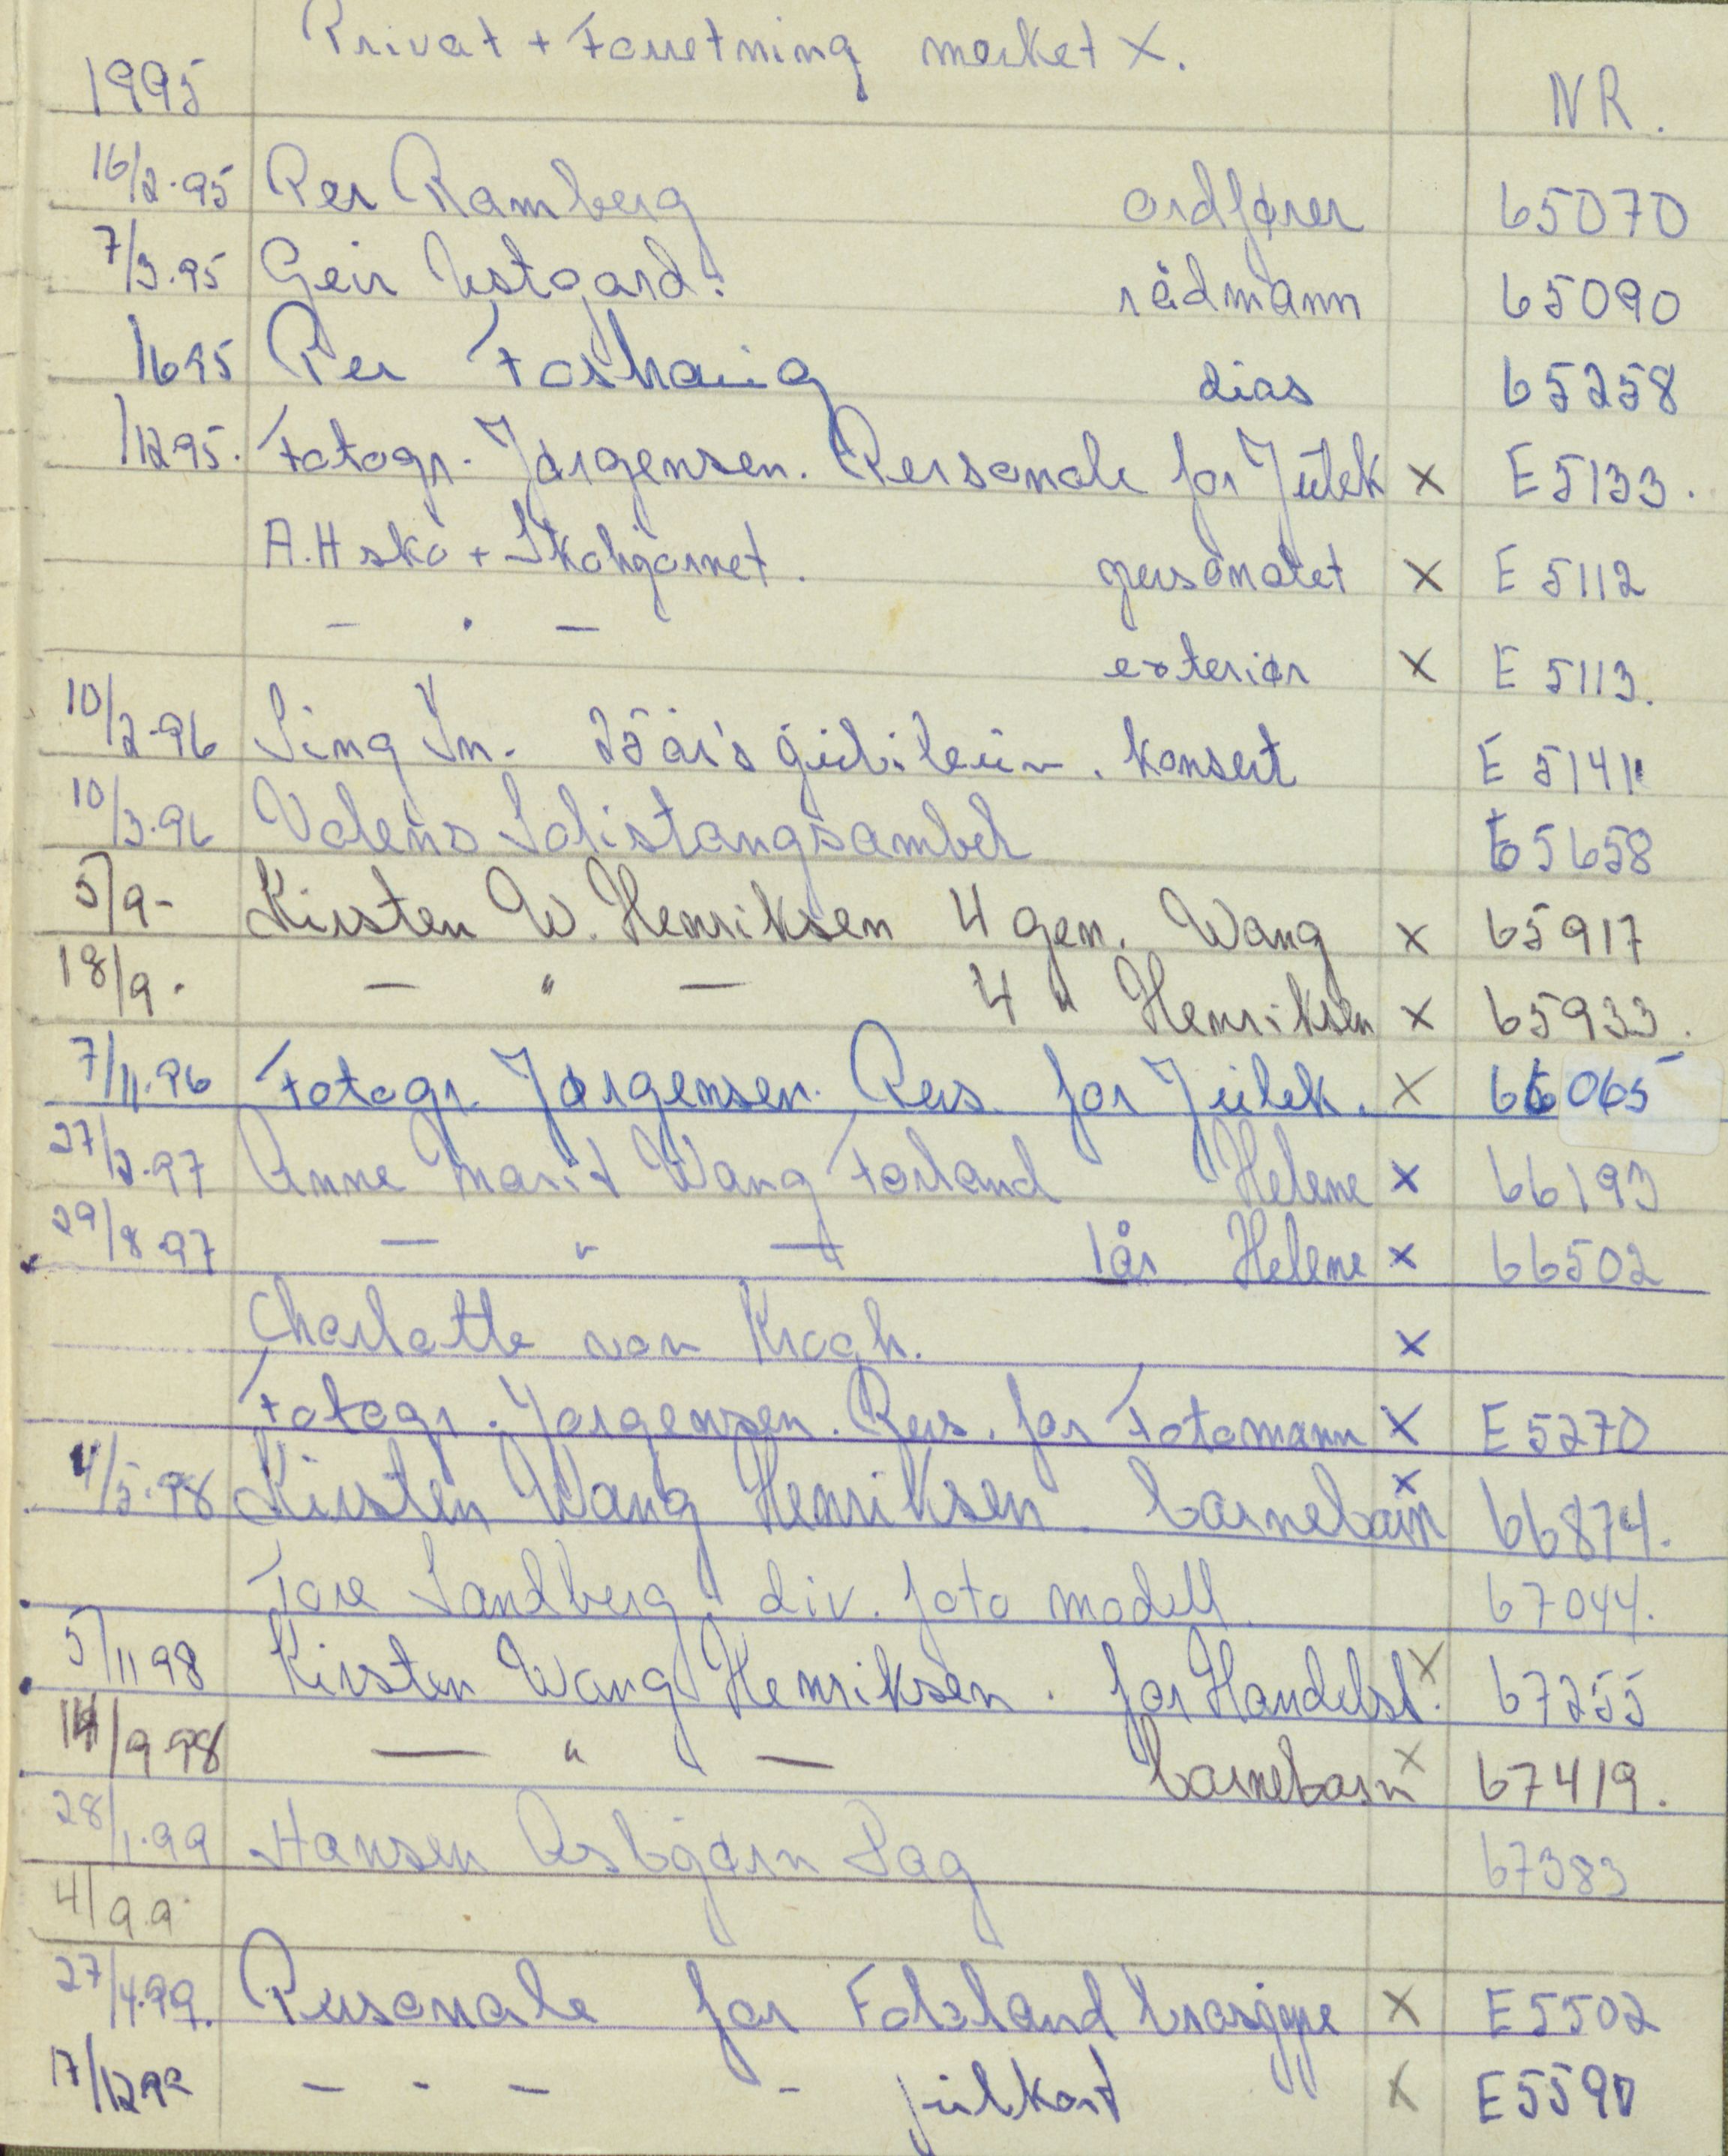 Privat + Forretning merket X.
1995 NR.
16/2-95 Per Ramberg ordfører 65070
7/3.95 Geir Ustgard: rådmann 65090
1695 Per Foshaug dias 65258
1/1295. Fotogr. Jørgensen. Personale for Julek X E 5133.
A.H sko + Skohjørnet. personalet X E 5112
- . - exteriør X E 5113.
10/2-96 Sing In. 25 år's jubileum. konsert E 5141
10/3.96 Solistangsambel 65658
5/9- Kirsten W. Henriksen 4 gen. Wang X 65917
18/9. - " - 4 " Henriksen X 65933.
7/11.96 Fotogr. Jørgensen. Pers. for Julek. X 66065
27/2.97 Anne Marit Wang Førland Helene X 66193
29/8.97 - " - 1 år Helene X 66502
Charlotte von Krogh. X
Fotogr. Jørgensen. Pers. for Fotomann X E 5270
4/5-98 Kirsten Wang Henriksen. barnebarn X 66874.
Tore Sandberg, div. foto modell. 67044.
5/11 98 Kirsten Wang Henriksen. for Handelst. X 67255
14/9.98 - " - barnebarn X 67419.
28/1.99 Hansen Asbjørn Dag 67383
4/9.9
27/4.99. Personale for brosjyre X E 5502
17/1299 - - - - julkort X E 5590